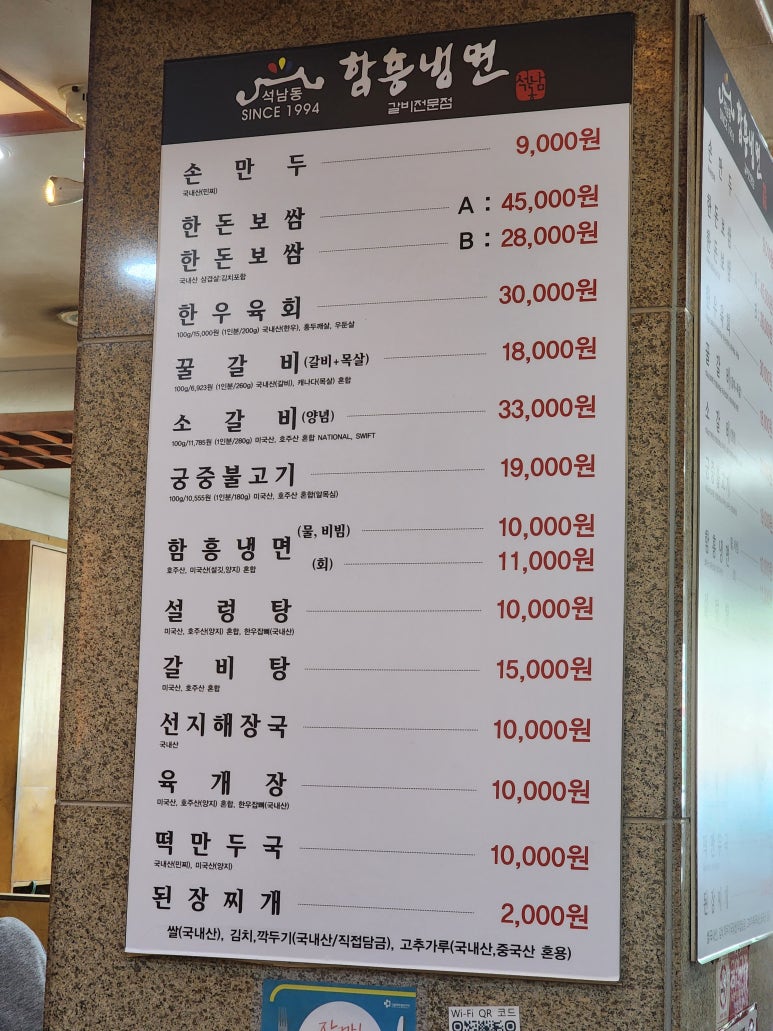 석남동
SINCE 1994
함흥냉면
갈비전문점
석남
손만두 9,000원
국내산(민찌)
한돈보쌈 A : 45,000원
한돈보쌈 B : 28,000원
국내산 삼겹살:김치포함
한우육회 30,000원
100g/15,000원 (1인분/200g) 국내산(한우), 홍두깨살, 우둔살
꿀갈비(갈비+목살) 18,000원
100g/6,923원 (1인분/260g) 국내산(갈비), 캐나다(목살) 혼합
소갈비(양념) 33,000원
100g/11,785원 (1인분/280g) 미국산, 호주산 혼합 NATIONAL, SWIFT
궁중불고기 19,000원
100g/10,555원 (1인분/180g) 미국산, 호주산 혼합(알목심)
함흥냉면 (물, 비빔) 10,000원
(회) 11,000원
호주산, 미국산(설깃,양지) 혼합
설렁탕 10,000원
미국산, 호주산(양지) 혼합, 한우잡뼈(국내산)
갈비탕 15,000원
미국산, 호주산 혼합
선지해장국 10,000원
국내산
육개장 10,000원
미국산, 호주산(양지) 혼합, 한우잡뼈(국내산)
떡만두국 10,000원
국내산(민찌), 미국산(양지)
된장찌개 2,000원
쌀(국내산), 김치,깍두기(국내산/직접담금), 고추가루(국내산,중국산 혼용)
Wi-Fi QR 코드